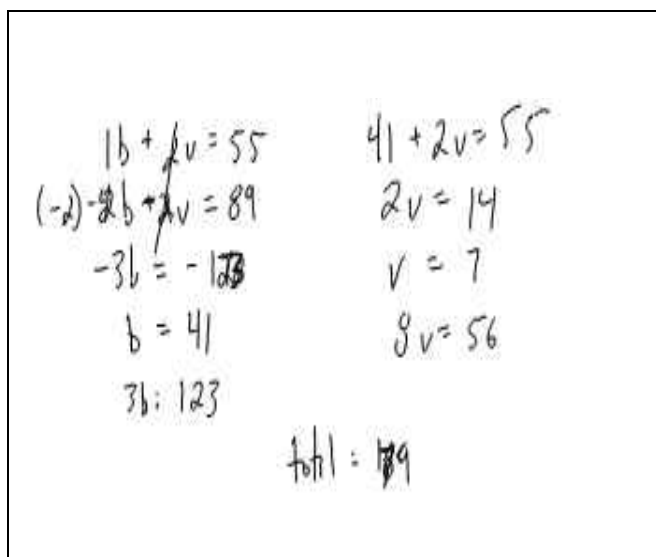 1b + 2v = 55
(-2) -4b + -2v = 89
-3b = -123
b = 41
3b: 123
41 + 2v = 55
2v = 14
v = 7
8v = 56
total: 179